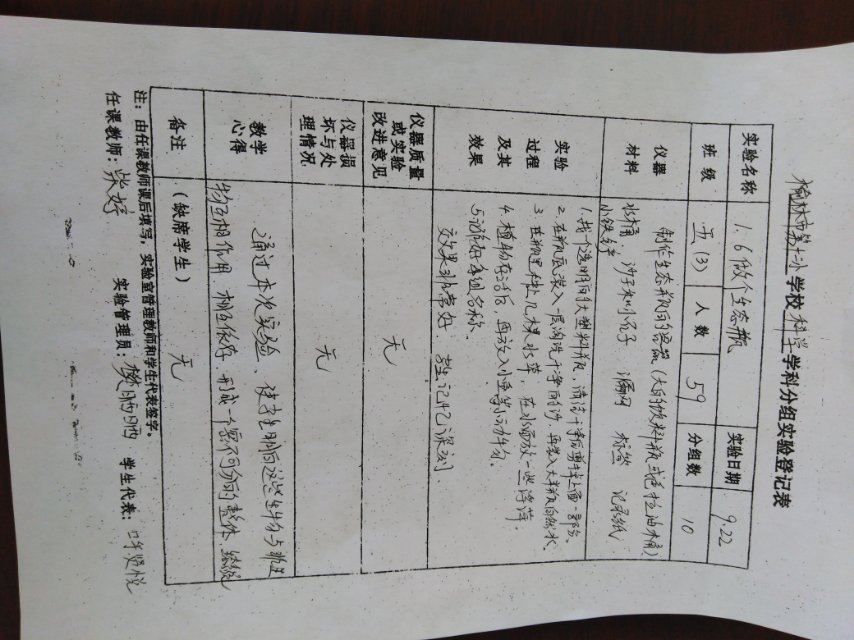 榆林市第十小学校科学学科分组实验登记表
实验名称 1.6做个生态瓶 实验日期 9.22
班级 五(3) 人数 59 分组数 10
仪器材料 制作生态瓶的容器(大的饮料瓶或色拉油桶)
水桶 沙子和小石子 漏网 标签 记录纸
小铁铲
实验过程及其效果
1.找个透明的大塑料瓶,清洁干净后剪掉上面一部分。
2.在瓶底装入一层淘洗干净的沙,再装入大半瓶的水。
3.在瓶里种上几棵水草,在水面放一些浮萍。
4.植物存活后,再放入小鱼等小动物。
5.记录好每组名称。
效果非常好 学生记忆深刻。
仪器质量或实验改进意见 无
仪器损坏与处理情况 无
教学心得 通过本次实验、使学生明白这些生物与非生
物互相作用、相互依存,形成一个密不可分的整体
备注 (缺席学生) 无
注:由任课教师课后填写,实验室管理教师和学生代表签字。
任课教师: 实验管理员: 学生代表: